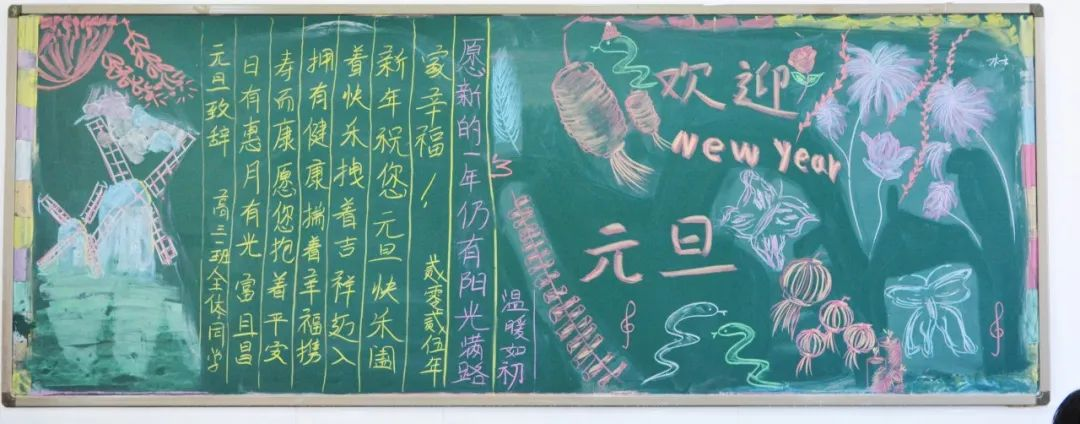 元旦致辞 高三一班全体同学
日有惠月有光富且昌
寿而康愿您抱着平安
拥有健康揣着幸福携
着快乐拽着吉祥迈入
新年祝您元旦快乐阖
家幸福！ 贰零贰伍年
愿新的一年仍有阳光满路
温暖如初
欢迎
New Year
元旦